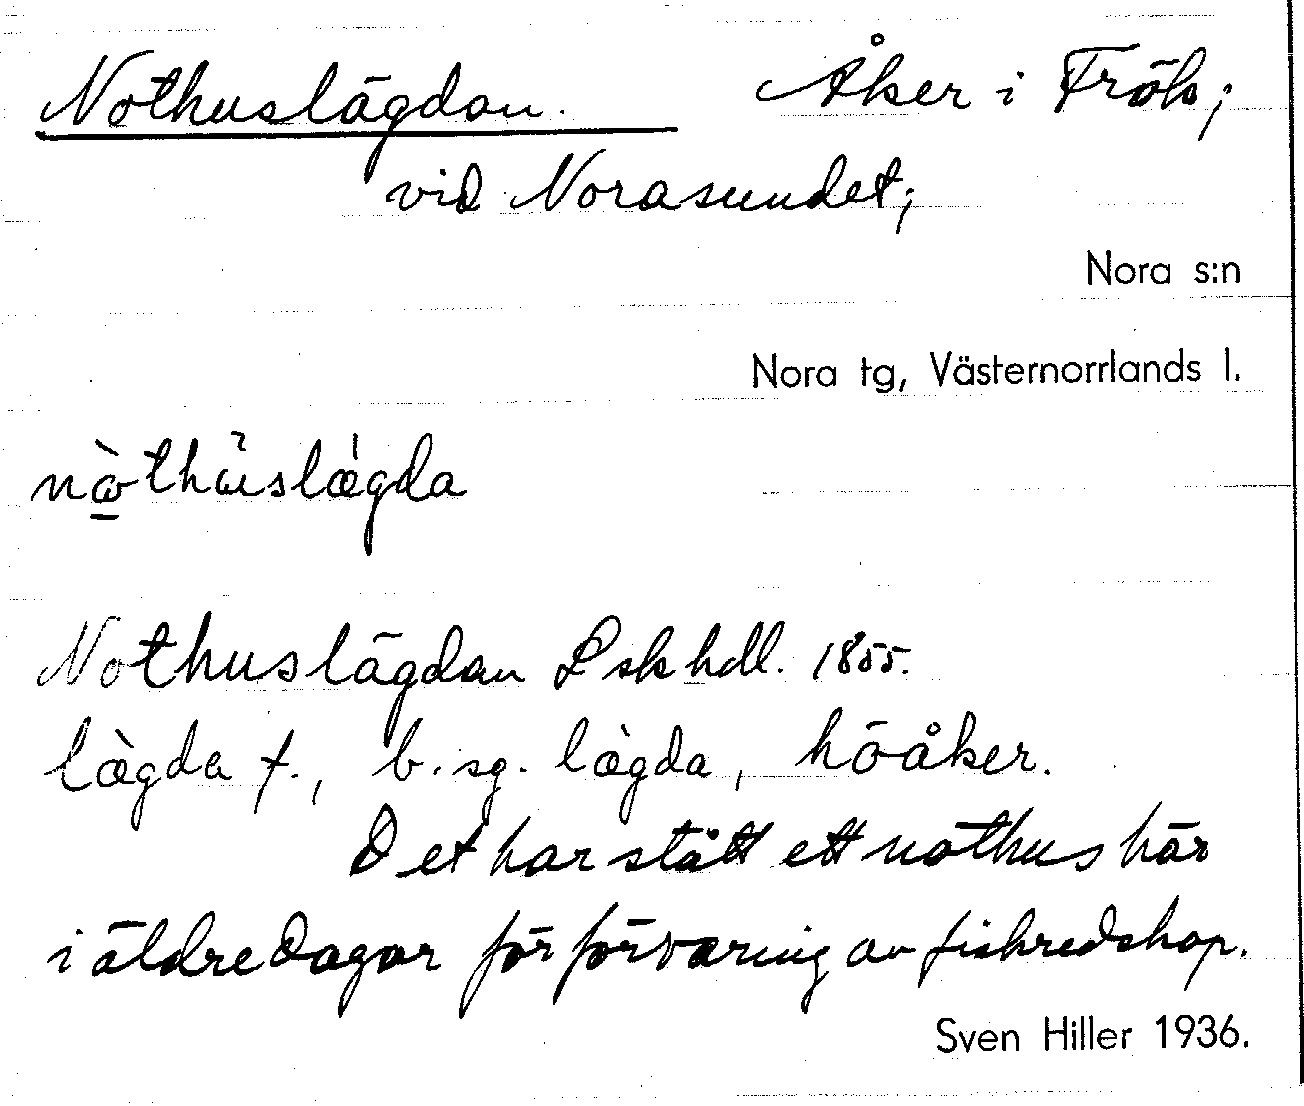 Nothuslägdan. Åker i Frök;
vid Norasundet;
Nora s:n
Nora tg, Västernorrlands l.
Nothuslägdan Lskhdl. 1855.
læ̀gda f., b. sg. læ̀gda, höåker.
Det har stått ett nothus här
i äldre dagar för förvaring av fiskredskap.
Sven Hiller 1936.